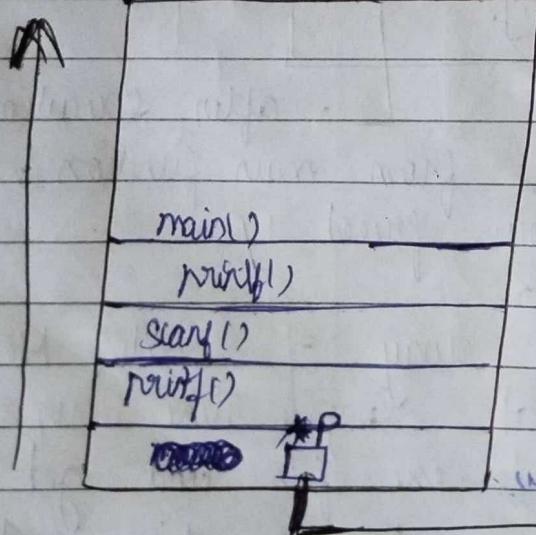 main()
printf()
scanf()
printf()